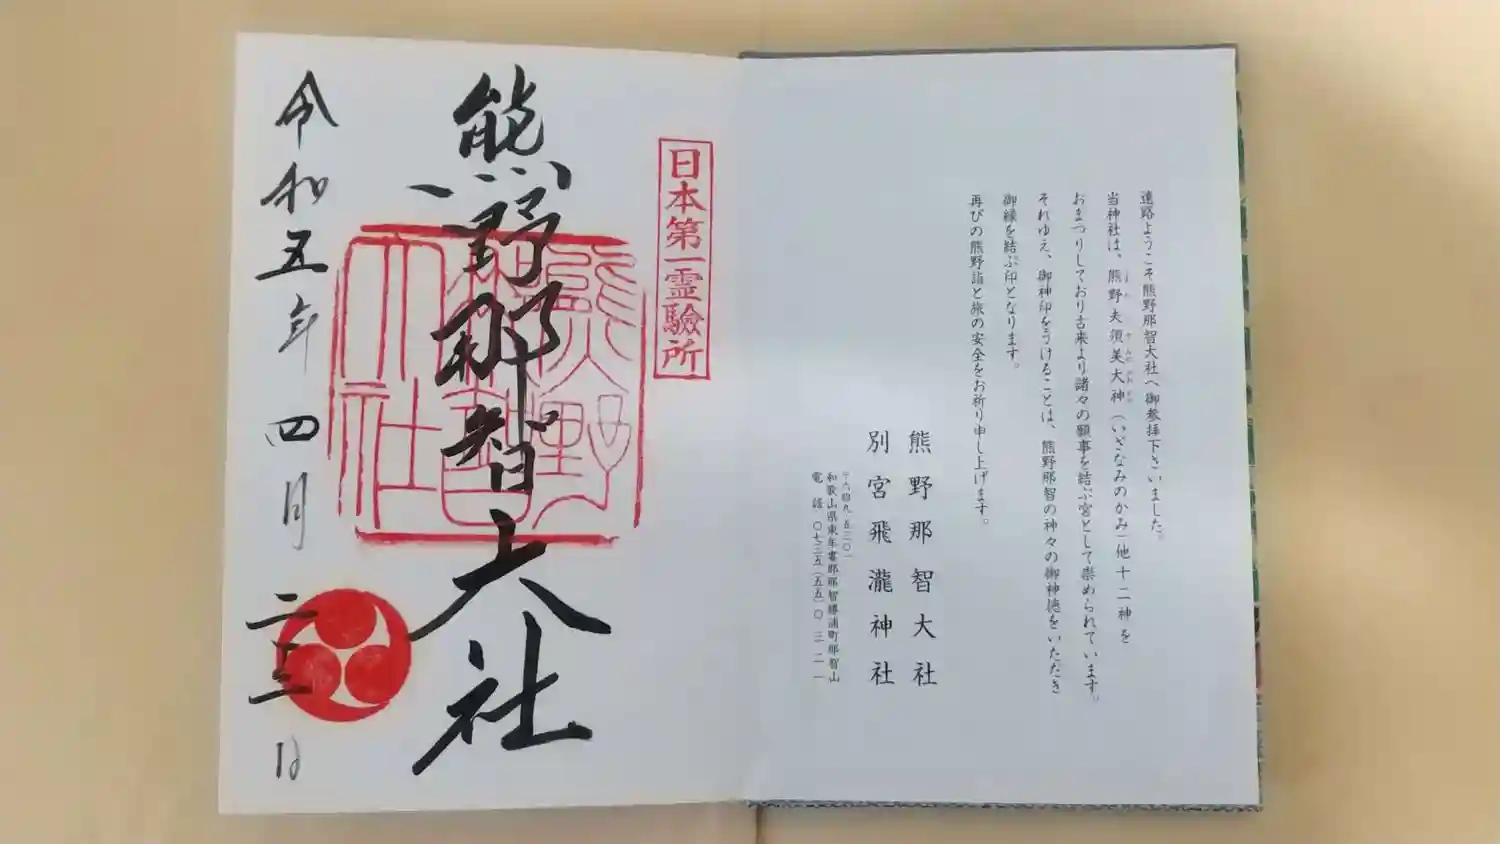 遠路ようこそ熊野那智大社へ御参拝下さいました。
当神社は、熊野夫須美大神（いざなみのかみ）他十二神を
おまつりしており古来より諸々の願事を結ぶ宮として崇められています。
それゆえ、御神印をうけることは、熊野那智の神々の御神徳をいただき
御縁を結ぶ印となります。
再びの熊野詣と旅の安全をお祈り申し上げます。
熊野那智大社
別宮飛瀧神社
〒六四九 五三〇一
和歌山県東牟婁郡那智勝浦町那智山
電話 〇七三五（五五）〇三二一
日本第一霊驗所
熊野那智大社
熊野
那智
大社
令和五年四月二十三日